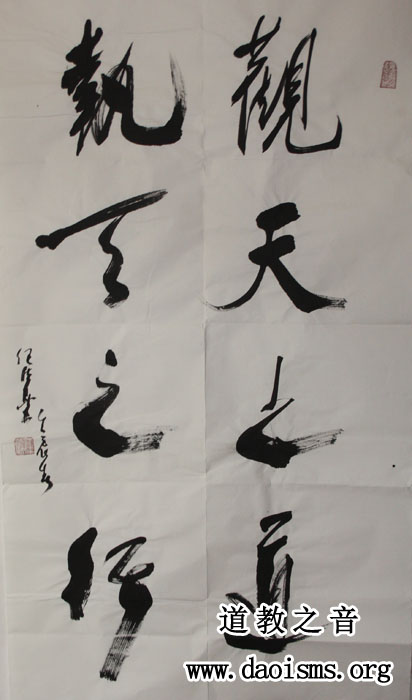 觀天之道
執天之行
道教之音
www.daoisms.org